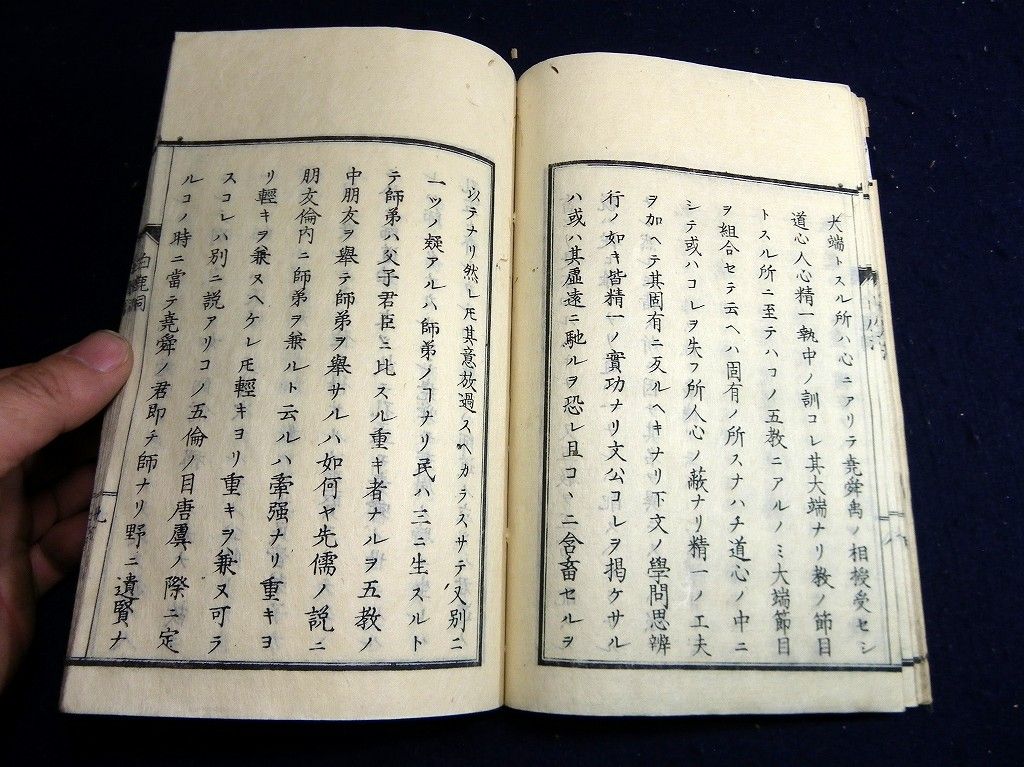 大端トスル所ハ心ニアリテ堯舜禹ノ相授受セシ
道心人心精一執中ノ訓コレ其大端ナリ教ノ節目
トスル所ニ至テハコノ五教ニアルノミ大端節目
ヲ組合セテ云ヘハ固有ノ所スナハチ道心ノ中ニ
シテ或ハコレヲ失フ所人心ノ蔽ナリ精一ノ工夫
ヲ加ヘテ其固有ニ反ルヘキナリ下文ノ學問思辨
行ノ如キ皆精一ノ實功ナリ文公コレヲ掲ケサル
ハ或ハ其虛遠ニ馳ルヲ恐レ且コヽニ含畜セルヲ
以テナリ然レ𪜈其意放過スヘカラスサテ又別ニ
一ツノ疑アルハ師弟ノヿナリ民ハ三ニ生スルト
テ師弟ハ父子君臣ニ比スル重キ者ナルヲ五教ノ
中朋友ヲ舉テ師弟ヲ舉サルハ如何ヤ先儒ノ說ニ
朋友倫內ニ師弟ヲ兼ルト云ルハ牽强ナリ重キヨ
リ輕キヲ兼ヌヘケレ𪜈輕キヨリ重キヲ兼ヌ可ラ
スコレハ別ニ說アリコノ五倫ノ目唐虞ノ際ニ定
ルコノ時ニ當テ堯舜ノ君即チ師ナリ野ニ遺賢ナ
白鹿洞
九